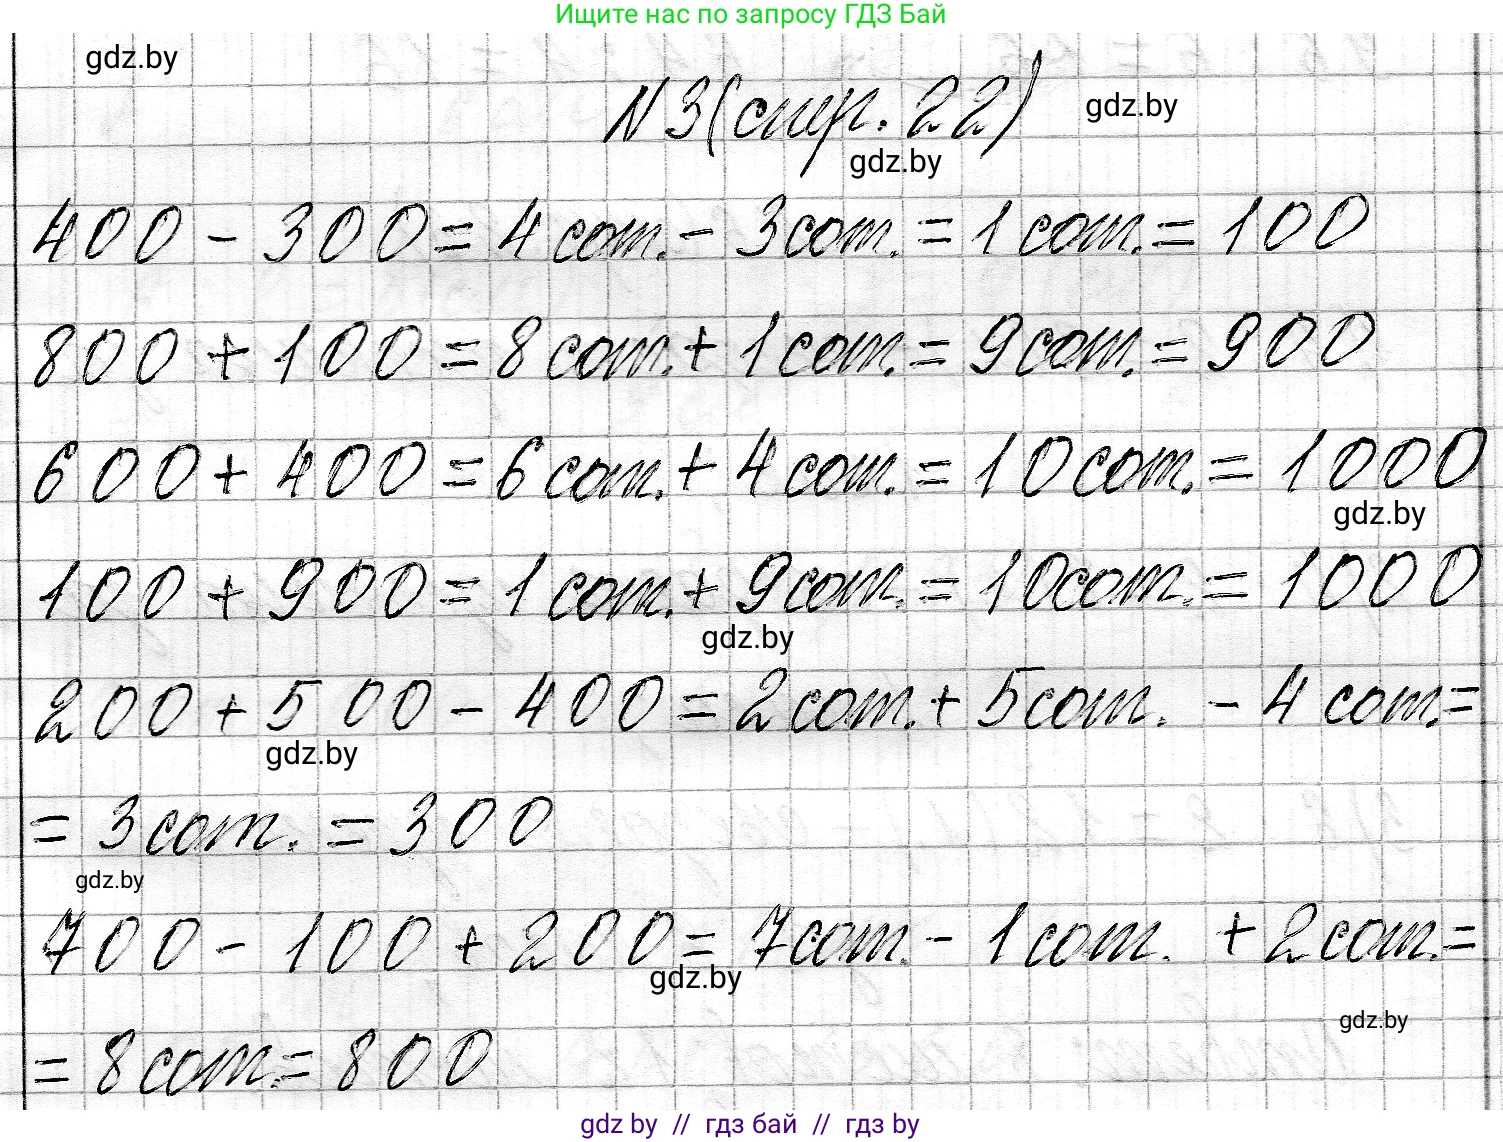 Ищите нас по запросу ГДЗ Бай
gdz.by
N3(стр. 22)
gdz.by
gdz.by
400 - 300 = 4 сот. - 3 сот. = 1 сот. = 100
800 + 100 = 8 сот. + 1 сот. = 9 сот. = 900
600 + 400 = 6 сот. + 4 сот. = 10 сот. = 1000
gdz.by
100 + 900 = 1 сот. + 9 сот. = 10 сот. = 1000
gdz.by
200 + 500 - 400 = 2 сот. + 5 сот. - 4 сот. =
gdz.by
= 3 сот. = 300
gdz.by
700 - 100 + 200 = 7 сот. - 1 сот. + 2 сот. =
gdz.by
gdz.by
= 8 сот. = 800
gdz by // гдз бай // гдз by